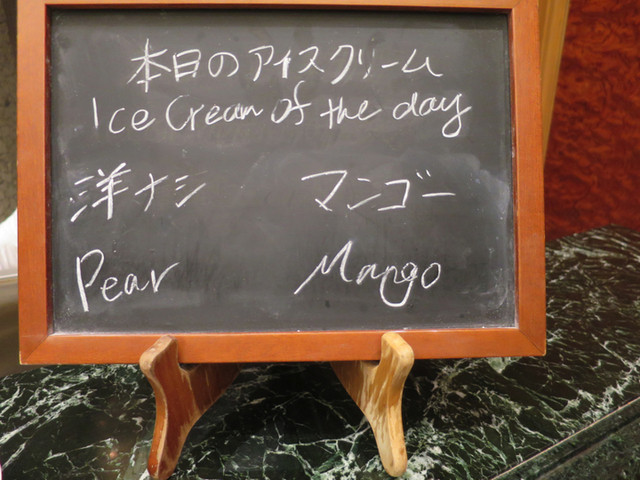 本日のアイスクリーム
Ice Cream of the day
洋ナシ マンゴー
Pear Mango